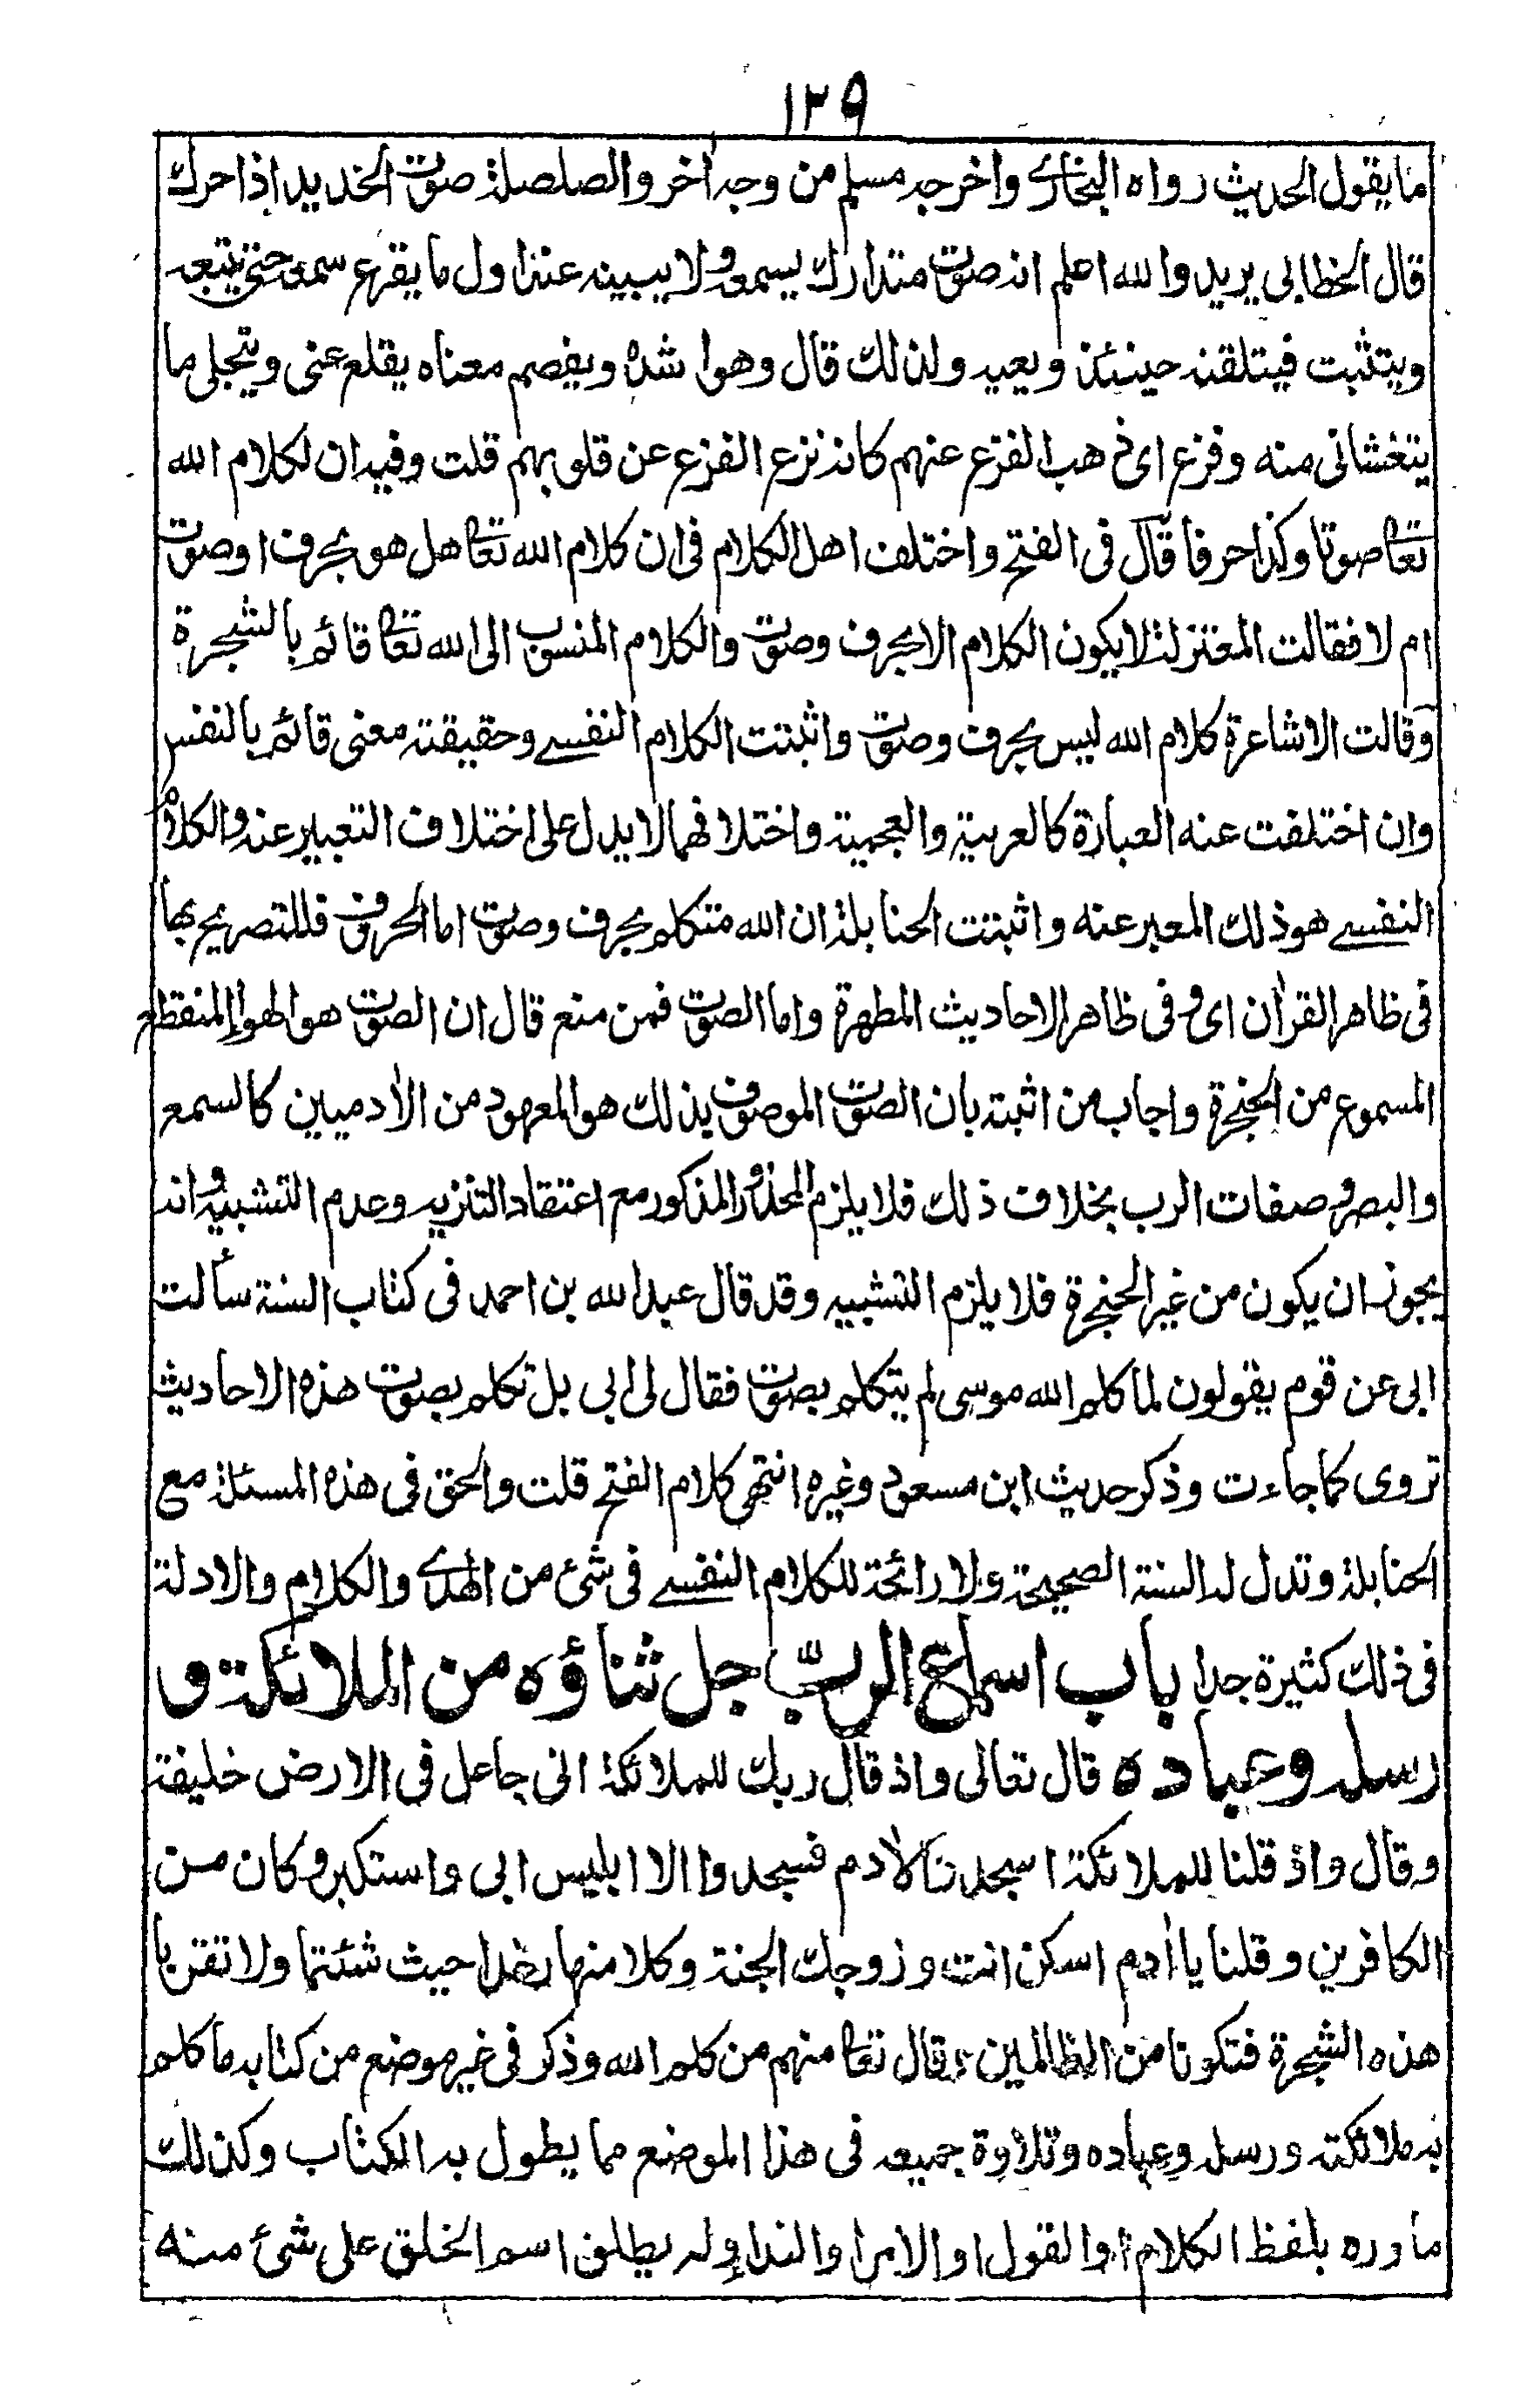 ١٢٩
ما يقول الحديث رواه البخاري واخرجه مسلم من وجه اخر والصلصلة صوت الحديد اذا حرك
قال الخطابي يريد والله اعلم انه صوت متدارك يسمعه ولا يبينه عند اول ما يقرع سمعه حتى يتبعه
ويتثبت فيتلقنه حينئذ ويعيه ولذلك قال وهو اشده ويفصم معناه يقلع عني ويتجلى ما
يتغشاني منه وفزع اي ذهب الفزع عنهم كانه نزع الفزع عن قلوبهم قلت وفيه ان لكلام الله
تعا صوتا وكذا حرفا قال في الفتح واختلف اهل الكلام في ان كلام الله تعا هل هو بحرف او صوت
ام لا فقالت المعتزلة لا يكون الكلام الا بحرف وصوت والكلام المنسوب الى الله تعا قائم بالشجرة
وقالت الاشاعرة كلام الله ليس بحرف وصوت واثبتت الكلام النفسي وحقيقته معنى قائم بالنفس
وان اختلفت عنه العبارة كالعربية والعجمية واختلافهما لا يدل على اختلاف التعبير عنه والكلام
النفسي هو ذلك المعبر عنه واثبتت الحنابلة ان الله متكلم بحرف وصوت اما الحروف فللتصريح بها
في ظاهر القرآن اي وفي ظاهر الاحاديث المطهرة واما الصوت فمن منع قال ان الصوت هو الهواء المنقطع
المسموع من الحنجرة واجاب من اثبته بان الصوت الموصوف بذلك هو المعهود من الآدميين كالسمع
والبصر وصفات الرب بخلاف ذلك فلا يلزم المحذور المذكور مع اعتقاد التنزيه وعدم التشبيه وانه
يجوز ان يكون من غير الحنجرة فلا يلزم التشبيه وقد قال عبدالله بن احمد في كتاب السنة سألت
ابي عن قوم يقولون لما كلم الله موسى لم يتكلم بصوت فقال لي ابي بل تكلم بصوت هذه الاحاديث
تروى كما جاءت وذكر حديث ابن مسعود وغيره انتهى كلام الفتح قلت والحق في هذه المسئلة مع
الحنابلة وتدل له السنة الصحيحة ولا رائحة للكلام النفسي في شئ من الهدي والكلام والادلة
في ذلك كثيرة جدا باب اسماع الرب جل ثناؤه من الملائكة و
رسله وعباده قال تعالى واذ قال ربك للملائكة اني جاعل في الارض خليفة
وقال واذ قلنا للملائكة اسجدوا لآدم فسجدوا الا ابليس ابى واستكبر وكان من
الكافرين وقلنا يا آدم اسكن انت وزوجك الجنة وكلا منها رغدا حيث شئتما ولا تقربا
هذه الشجرة فتكونا من الظالمين وقال تعا منهم من كلم الله وذكر في غير موضع من كتابه ما كلم
به ملائكته ورسله وعباده وتلاوة جميعه في هذا الموضع مما يطول به الكتاب وكذلك
ما ورد بلفظ الكلام او القول او الامر او النداء ولم يطلق اسم الخلق على شئ منه